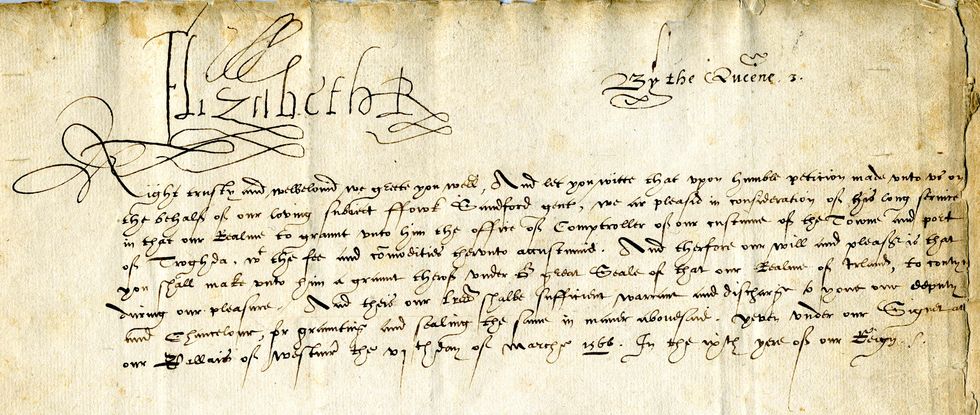 Elizabeth R
By the Quene.
Right trusty and welbeloved we greete you well, And let you witte that upon humble peticion made unto us on
the behalf of our loving subiect ffowk Sandford gent, we ar pleased in consideration of his long service
in that our Realme to graunt unto him the office of Comptroller of our custume of the Towne and port
of Droghda. wt the fee and comodities therunto accustumid. And therfore our will and pleasr is that
you shall make unto him a graunt therof under or great Seale of that our Realme of Irland, to contynue
during our pleasure. And theis our lres shalbe sufficient warrant and discharge to youe our deputy
and Chancelour, for graunting and sealing the same in maner abovesaid. Yeven under our Signet at
our Pallais of westmr the vi th day of Marche 1566. In the ixth yere of our Reign.